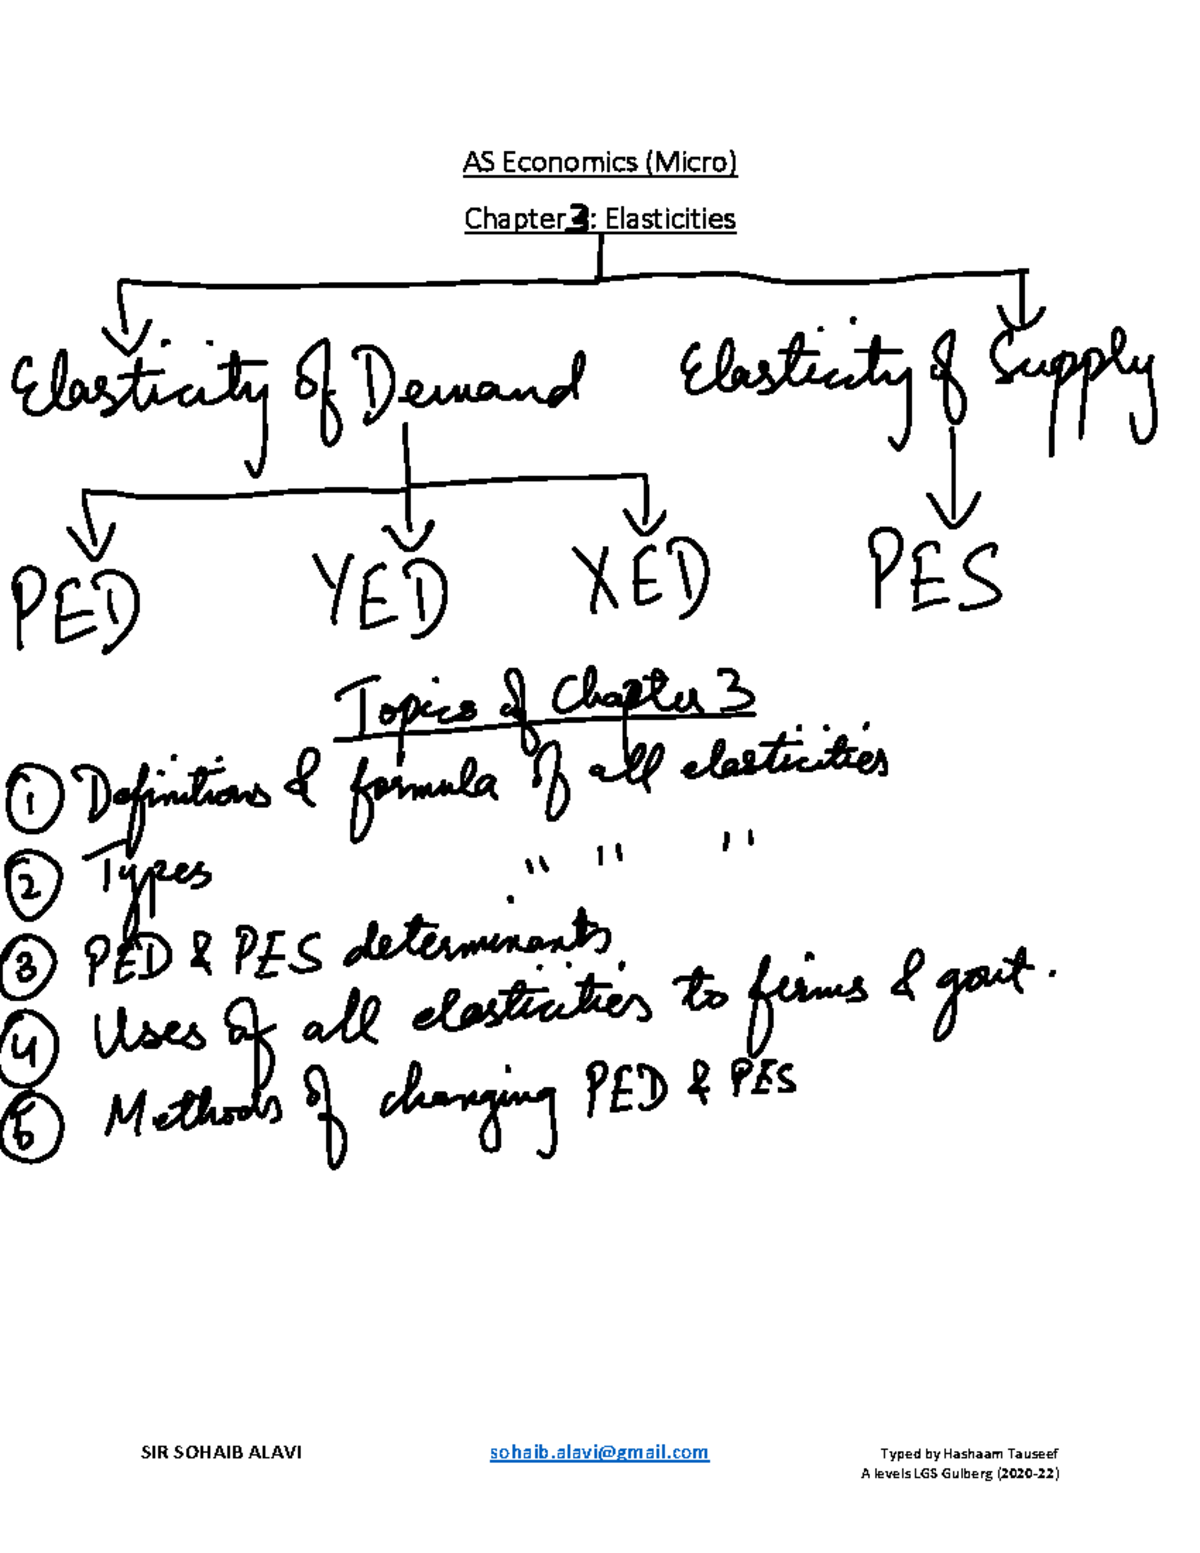 AS Economics (Micro)
Chapter 3: Elasticities
Elasticity of Demand Elasticity of Supply
PED YED XED PES
Topics of Chapter 3
1 Definitions & formula of all elasticities
2 Types " " "
3 PED & PES determinants
4 Uses of all elasticities to firms & govt.
5 Methods of changing PED & PES
SIR SOHAIB ALAVI sohaib.alavi@gmail.com Typed by Hashaam Tauseef
A levels LGS Gulberg (2020-22)